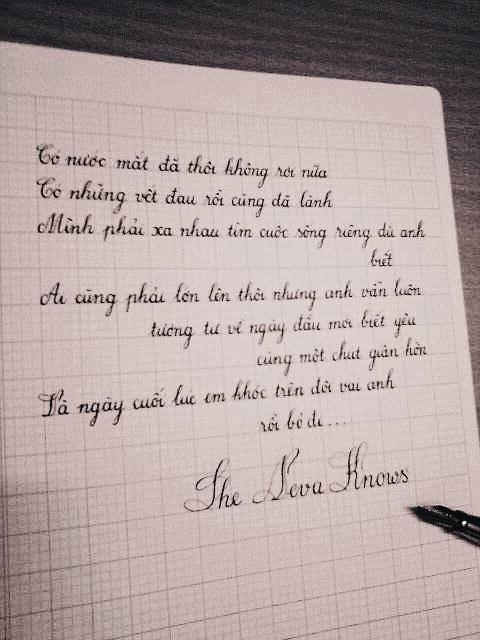 Có nước mắt đã thôi không rơi nữa
Có những vết đau rồi cũng đã lành
Mình phải xa nhau tìm cuộc sống riêng dù anh
biết
Ai cũng phải lớn lên thôi nhưng anh vẫn luôn
tương tư về ngày đầu mới biết yêu
cùng một chút giận hờn
Và ngày cuối lúc em khóc trên đôi vai anh
rồi bỏ đi...
She Neva Knows